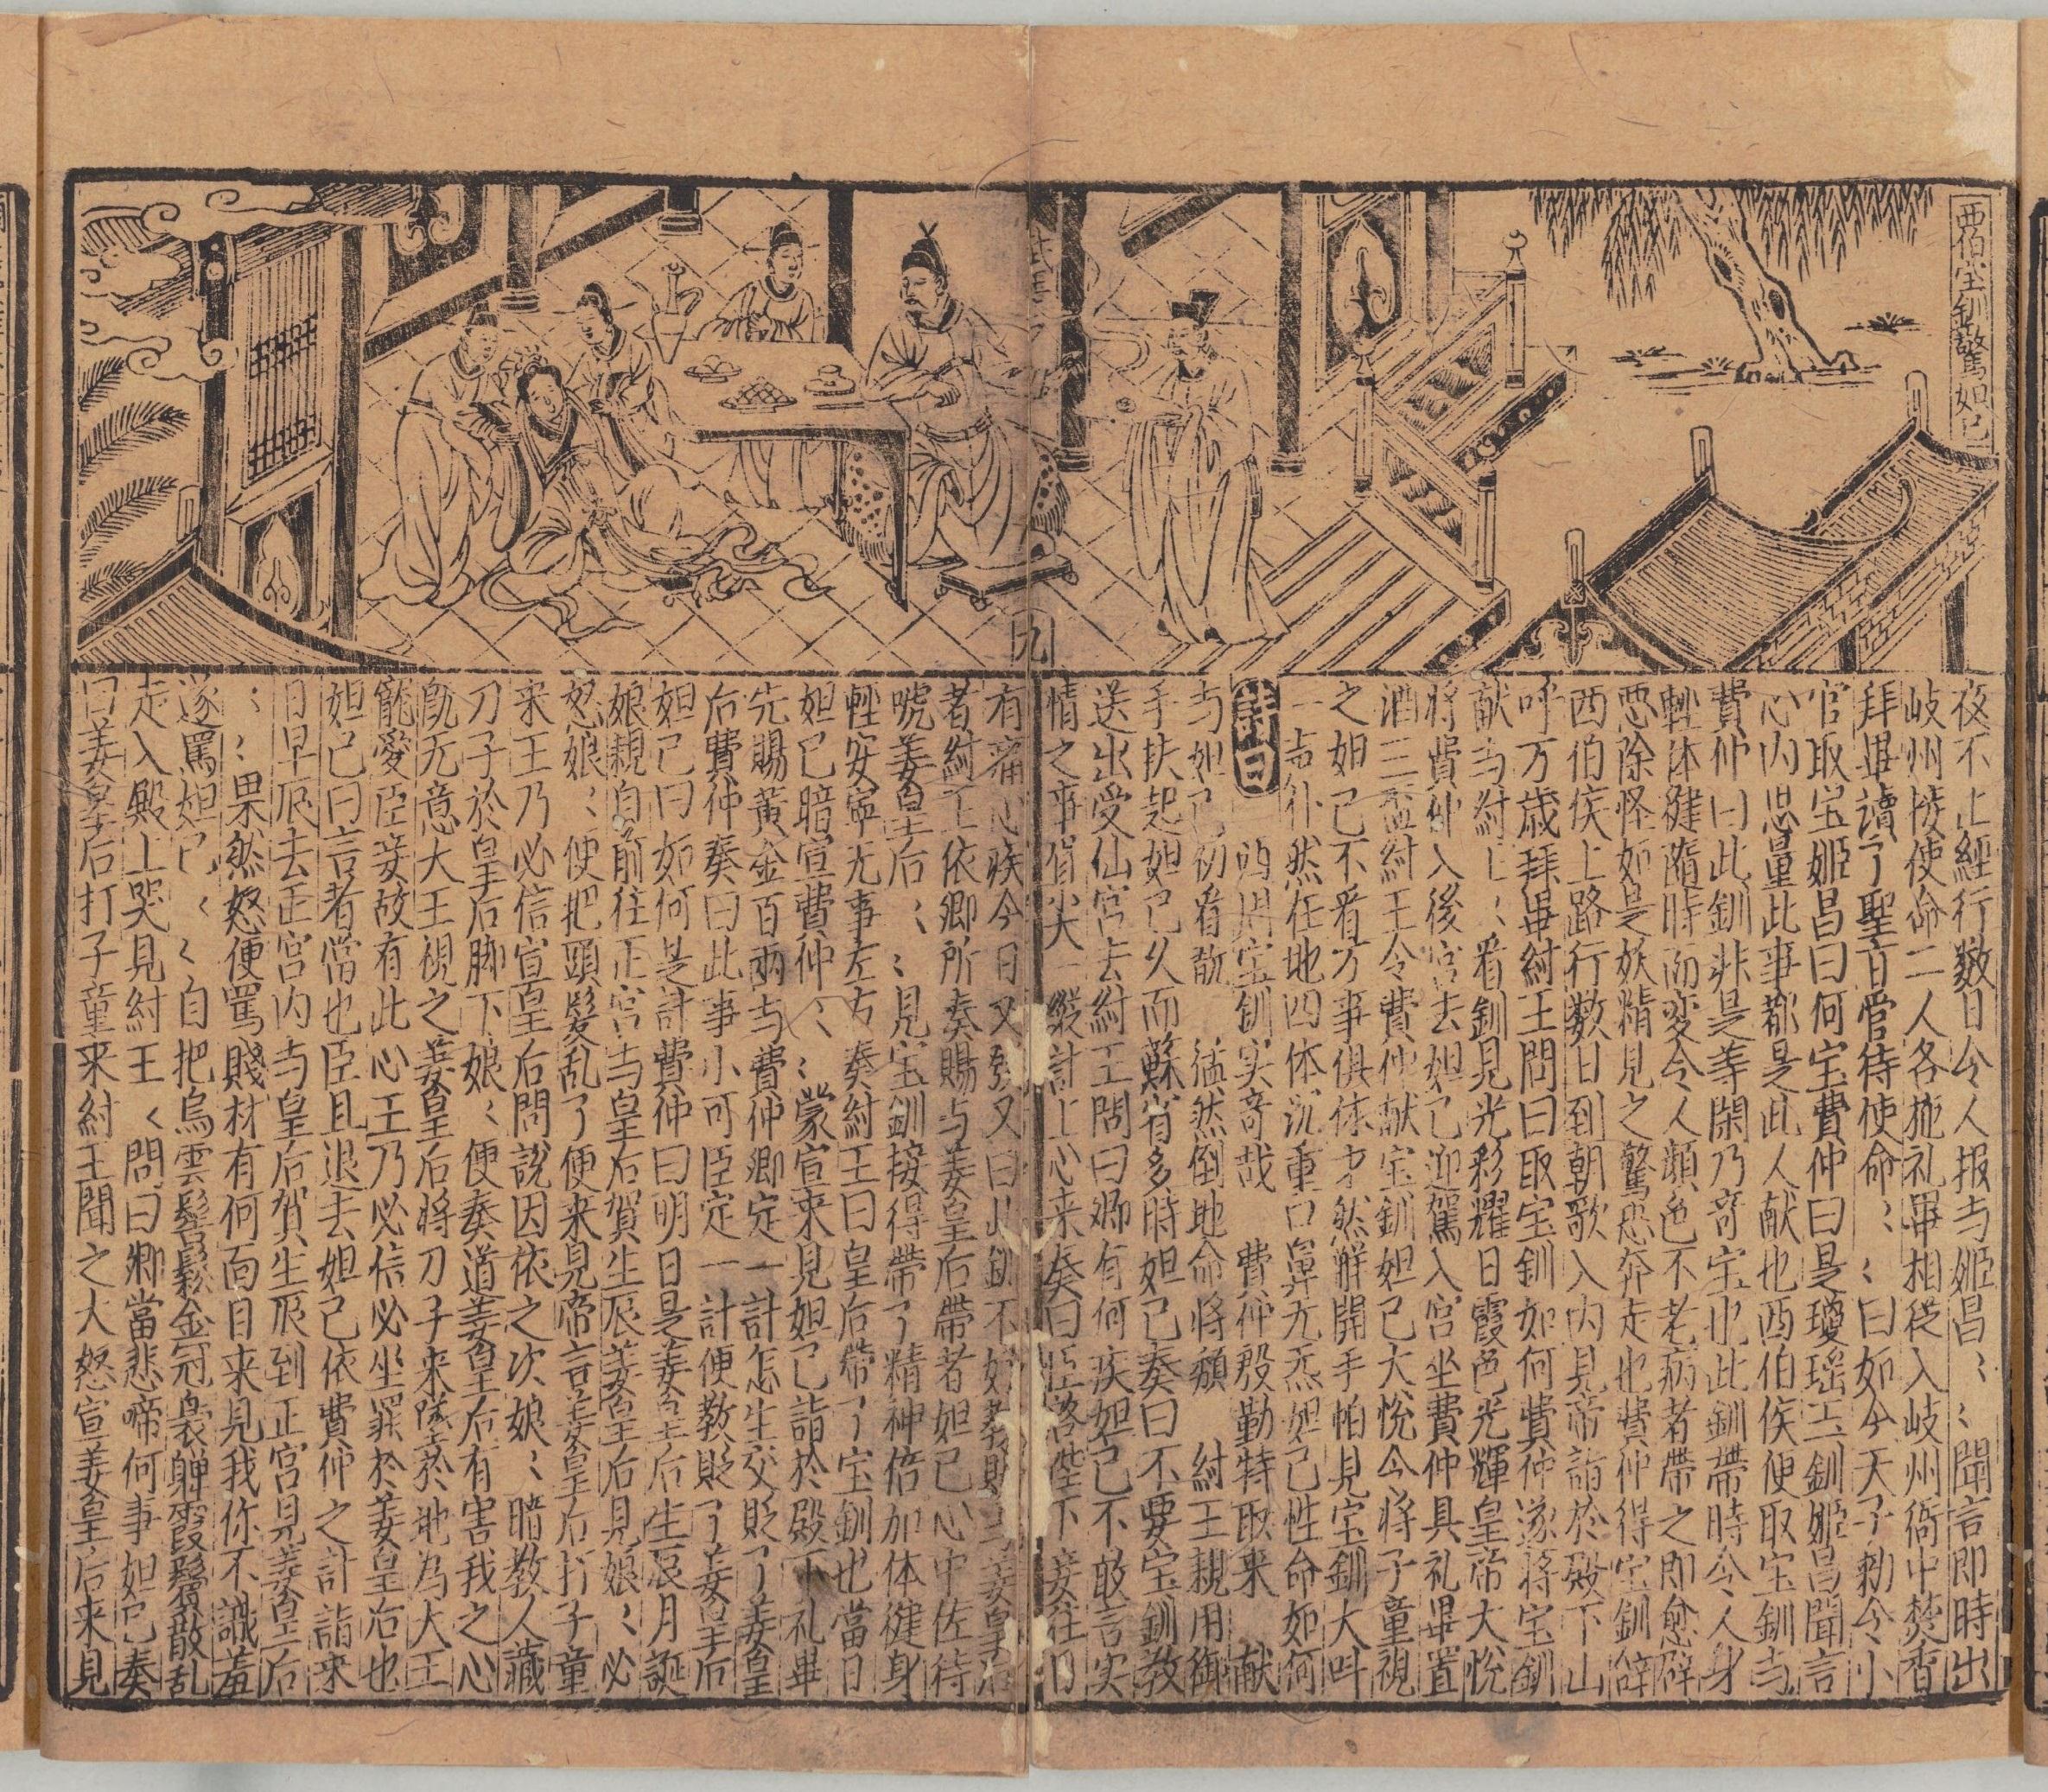 西伯宝釧驚妲己
九
夜不上經行数日令人报与姬昌〻〻聞言即時出
岐州接使命二人各施礼畢相從入岐州衙中焚香
拜畢讀了聖旨管待使命〻〻曰如今天子勑令小
官取宝姬昌曰何宝費仲曰是瓊瑶玉釧姬昌聞言
心内思量此事都是此人献也西伯侯便取宝釧与
費仲曰此釧非是等閑乃奇宝也此釧帶時令人身
輕体健隨時而变令人顔色不老病者帶之即愈辟
惡除怪如是妖精見之驚恐奔走也費仲得宝釧辞
西伯侯上路行数日到朝歌入内見帝詣於殿下山
呼万歳拜畢紂王問曰取宝釧如何費仲遂將宝釧
献与紂王〻看釧見光彩耀日霞色光輝皇帝大悅
將費仲入後宮去妲己迎駕入宮坐費仲具礼畢置
酒三盃紂王令費仲献宝釧妲己大悅令將子童視
之妲己不看万事俱休才然觧開手帕見宝釧大呌
一声仆然在地四体沉重口鼻无炁妲己性命如何
詩曰
西周宝釧实竒哉　費仲殷勤特取来　献
与妲己初看翫　猛然倒地命將頹　紂王親用御
手扶起妲己久而蘇省多時妲己奏曰不要宝釧教
送出受仙宮去紂王問曰卿有何疾妲己不敢言实
情之事
有
心疾今日又發又曰此釧不好教賜
姜皇后
者紂王依卿所奏賜与姜皇后帶者妲己心中佐待
唬姜皇后〻〻見宝釧接得帶了精神倍加体健身
輕安寧无事左右奏紂王曰皇后帶了宝釧也當日
妲己暗宣費仲〻〻蒙宣来見妲己詣於殿下礼畢
先賜黃金百兩与費仲卿定一計怎生交貶了姜皇
后費仲奏曰此事小可臣定一計便教貶了姜皇后
妲己曰如何是計費仲曰明日是姜皇后生辰月誕
娘親自前往正宮与皇后賀生辰姜皇后見娘〻必
怒娘〻便把頭髮乱了便来見帝言姜皇后打子童
来王乃必信宣皇后問說因依之次娘〻暗教人藏
刀子於皇后脚下娘〻便奏道姜皇后有害我之心
旣无意大王視之姜皇后將刀子来墜於地為大王
寵愛臣妾故有此心王乃必信必坐罪於姜皇后也
妲己曰言者當也臣且退去妲己依費仲之計詣来
日早辰去正宮内与皇后賀生辰到正宮見姜皇后
〻〻果然怒便罵賤材有何面目来見我你不識羞
遂罵妲己〻〻自把烏雲鬢鬆金冠裊軃霞鬟散乱
走入殿上哭見紂王〻問曰卿當悲啼何事妲己奏
曰姜皇后打子童来紂王聞之大怒宣姜皇后来見